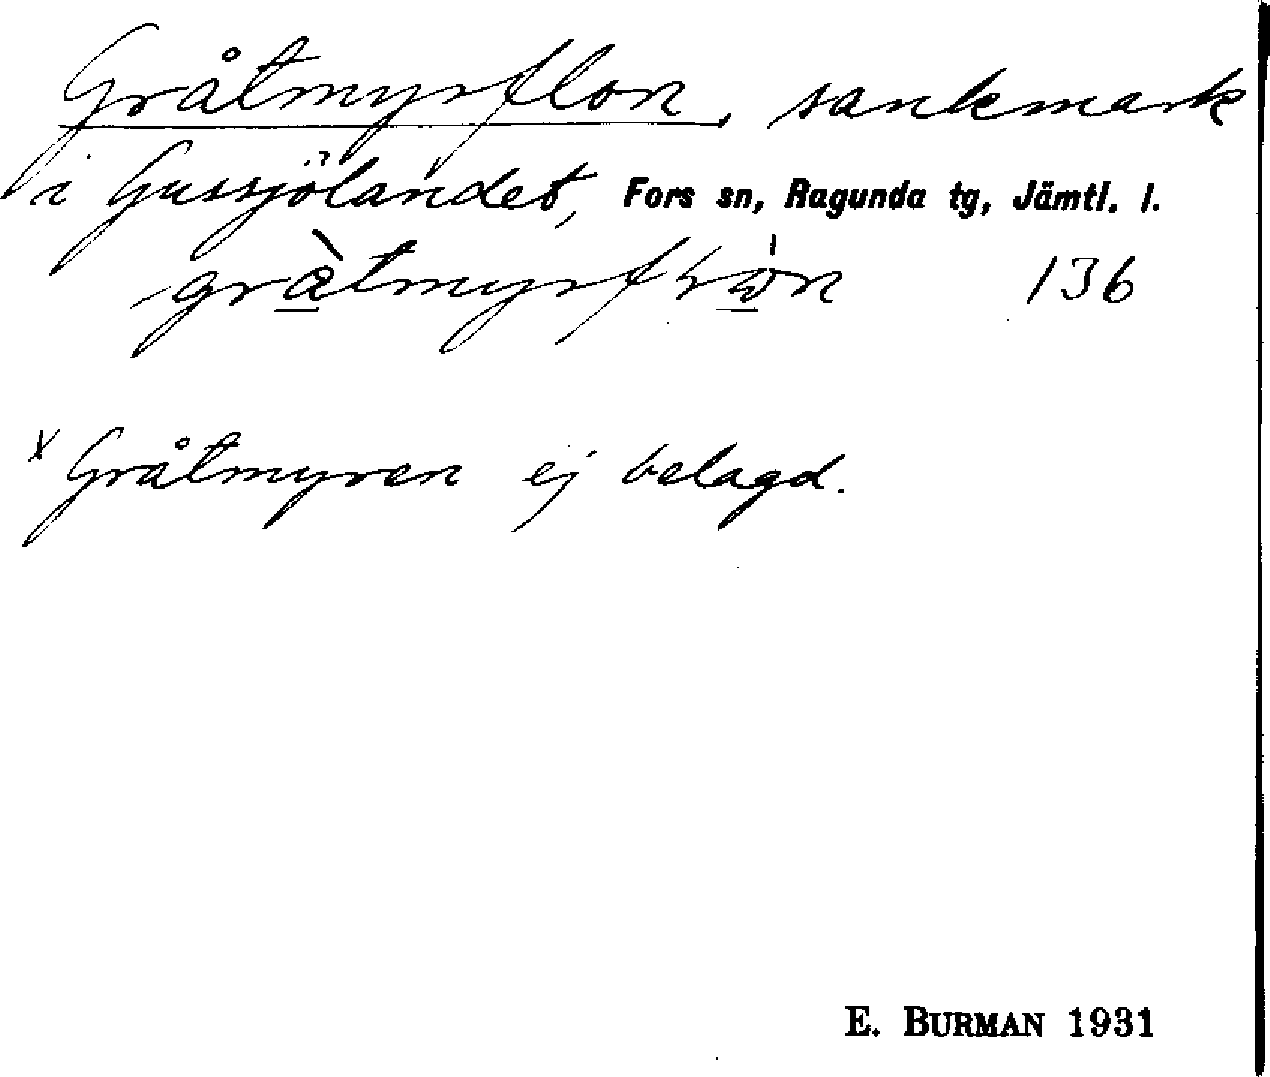 Gråtmyrflon, sankmark
i Gussjölandet, Fors sn, Ragunda tg, Jämtl. l.
136
x Gråtmyren ej belagd.
E. BURMAN 1931